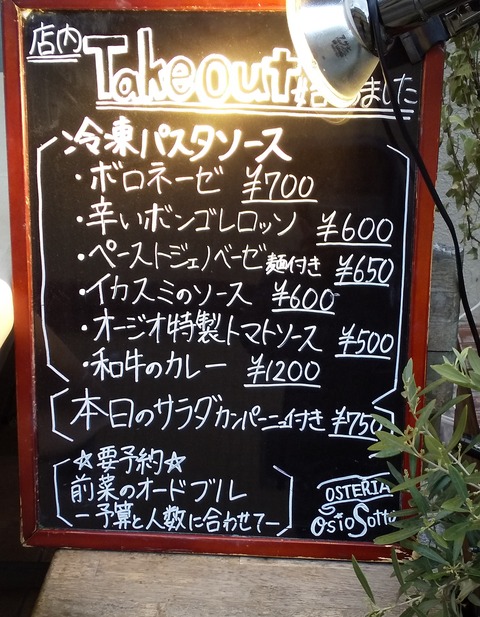 店内 Takeout 始めました
冷凍パスタソース
・ボロネーゼ ¥700
・辛いボンゴレロッソ ¥600
・ペーストジェノベーゼ 麺付き ¥650
・イカスミのソース ¥600
・オージオ特製トマトソース ¥500
・和牛のカレー ¥1200
本日のサラダカンパーニュ付き ¥750
☆要予約☆
前菜のオードブル
ー予算と人数に合わせてー
OSTERIA
OsioSotto